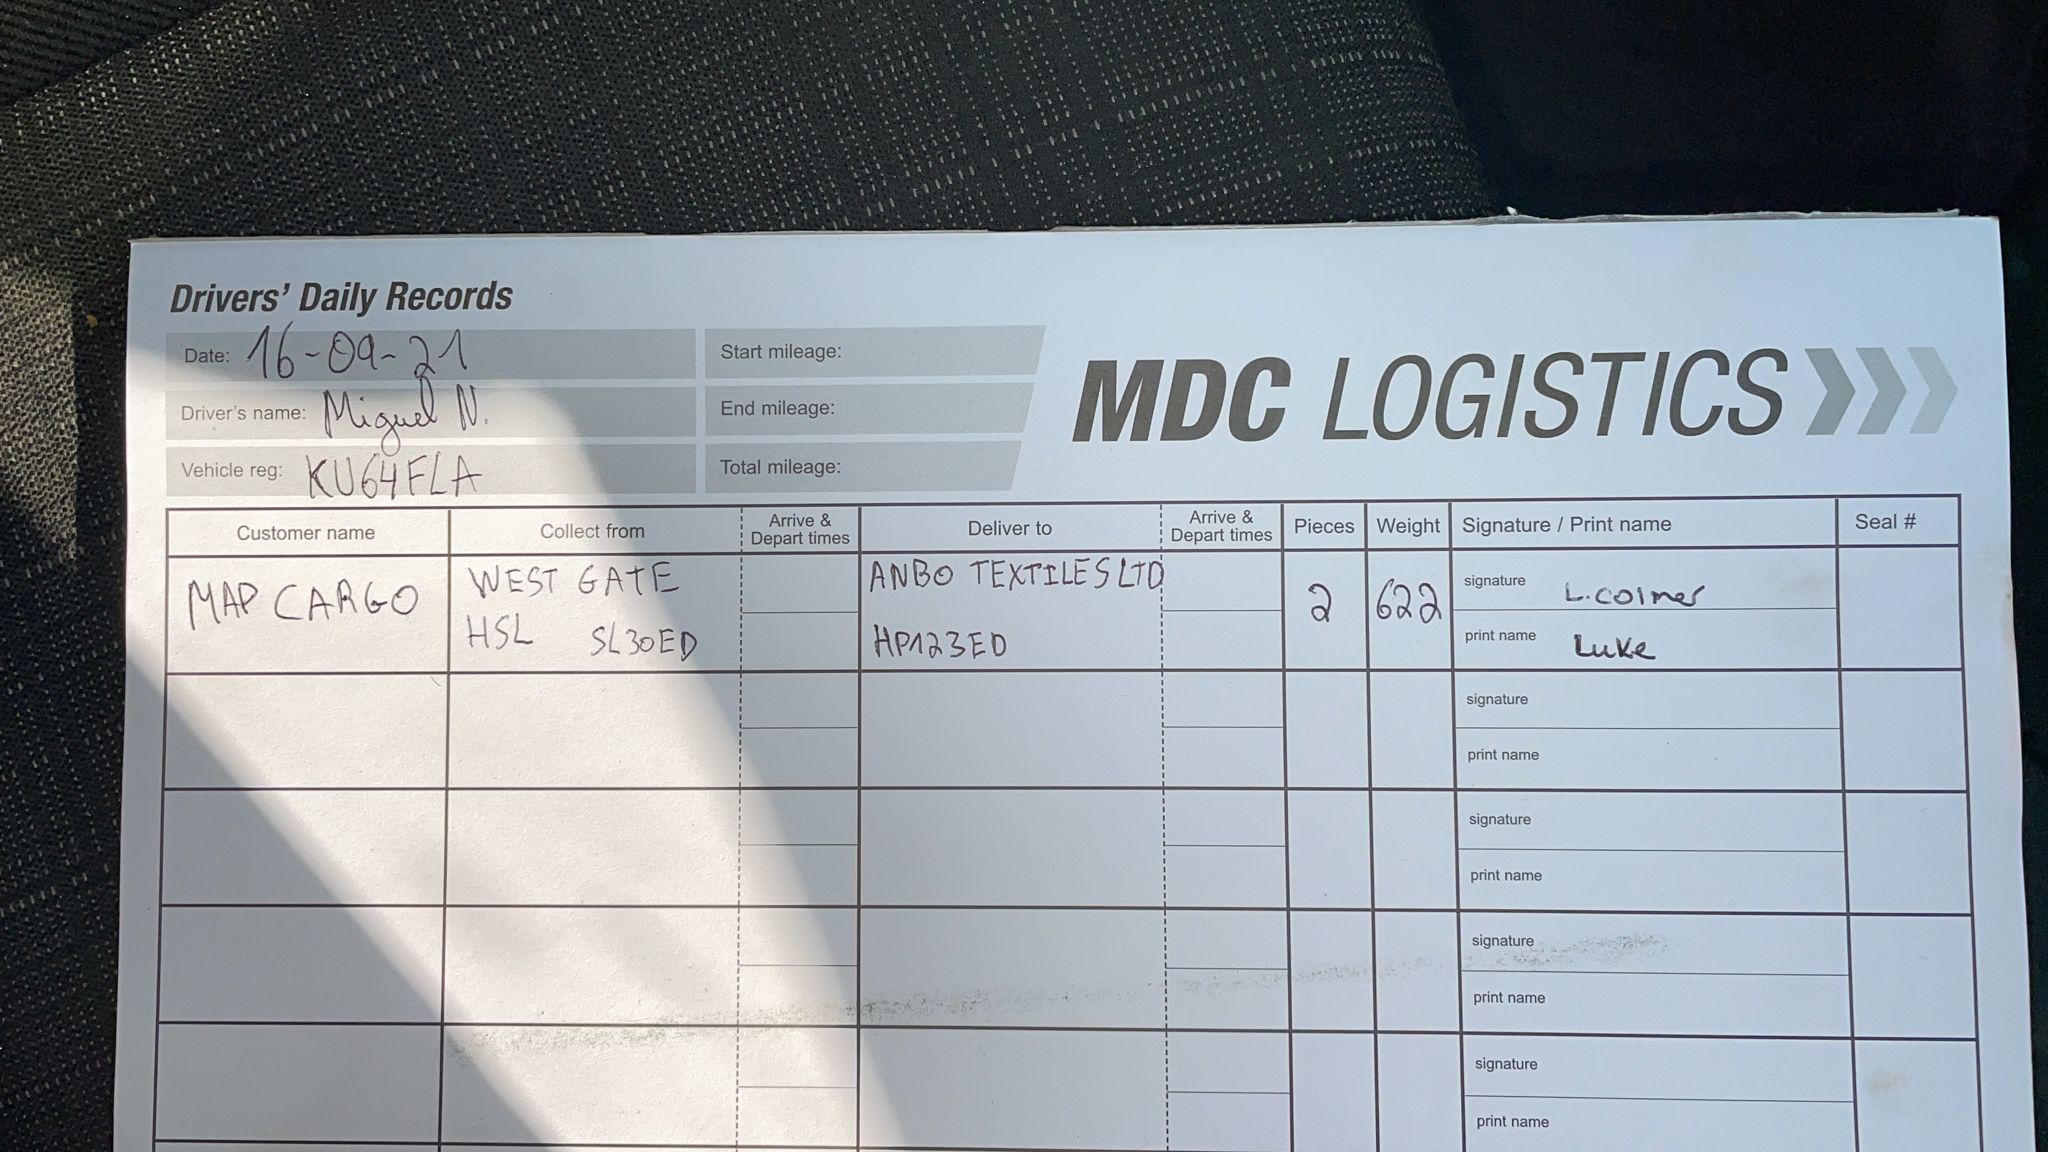 Drivers' Daily Records
Date: 16-09-21
Start mileage:
Driver's name: Miguel N.
End mileage:
Vehicle reg: KU64FLA
Total mileage:
MDC LOGISTICS
Customer name
Collect from
Arrive &
Depart times
Deliver to
Arrive &
Depart times
Pieces
Weight
Signature / Print name
Seal #
MAP CARGO
WEST GATE
HSL SL30ED
ANBO TEXTILES LTD
HP123ED
2
622
signature L.colmer
print name Luke
signature
print name
signature
print name
signature
print name
signature
print name